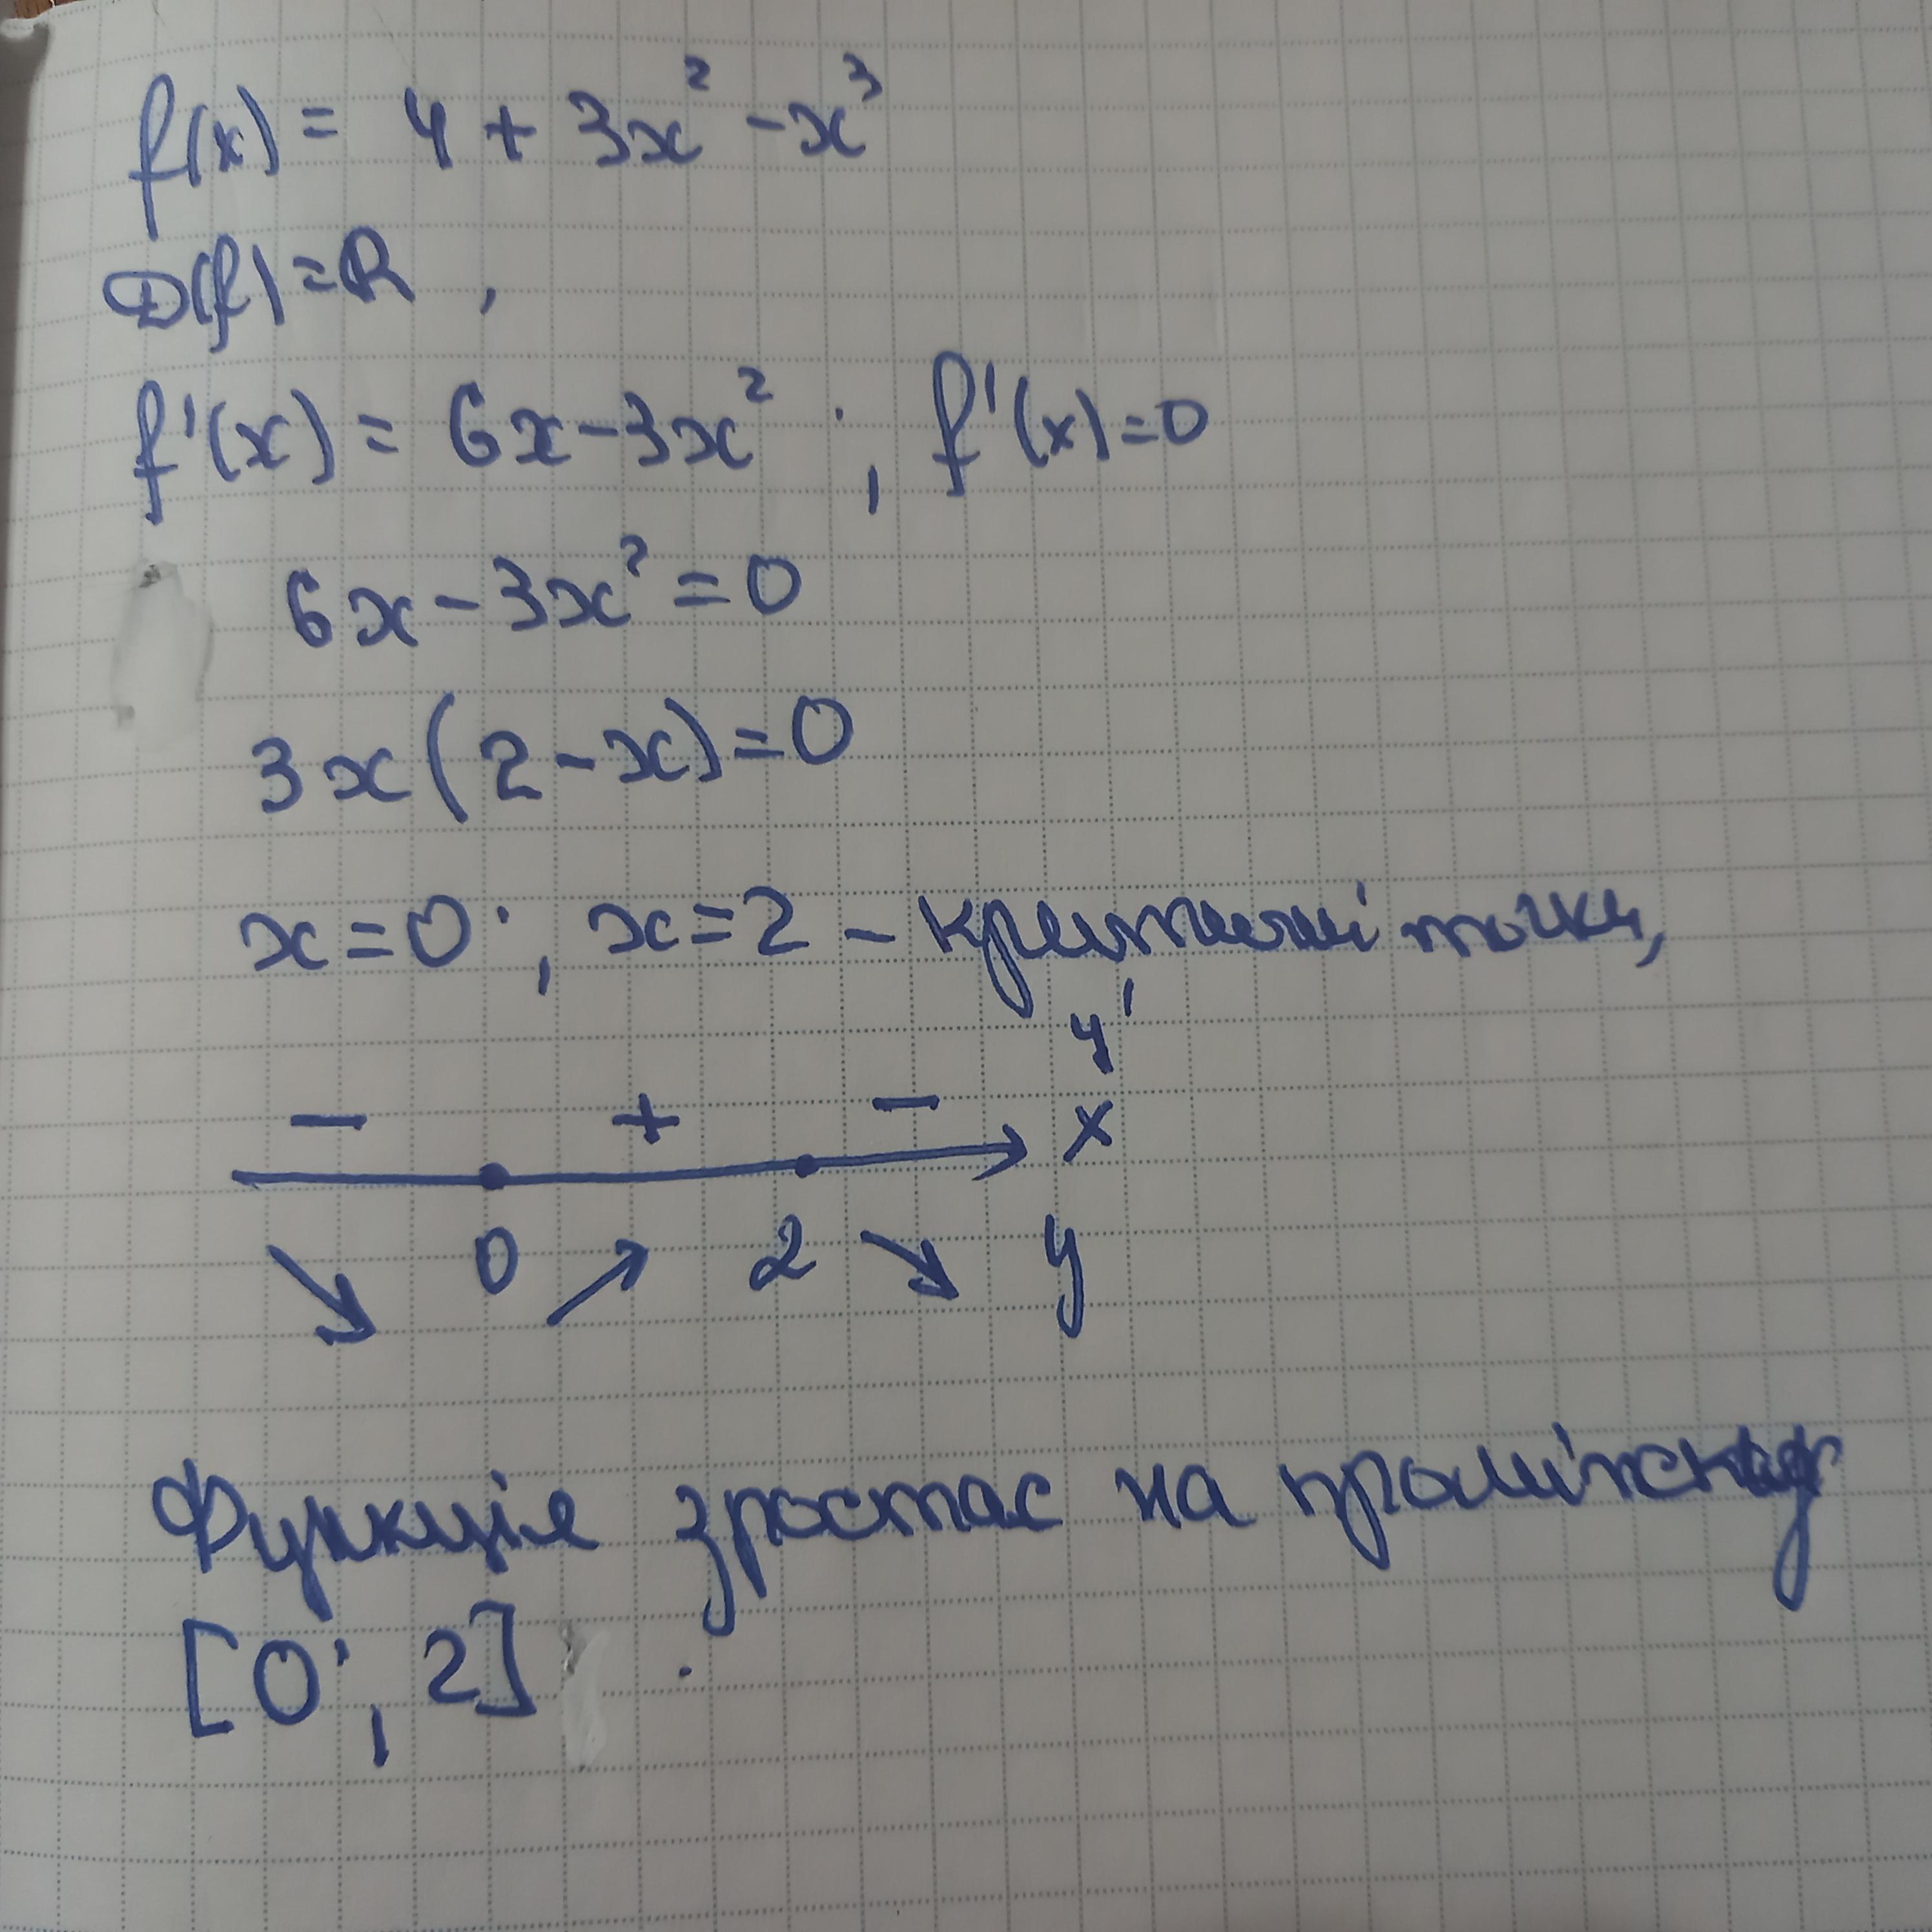 f(x) = 4 + 3x² - x³
D(f) = R ,
f'(x) = 6x - 3x² ; f'(x) = 0
6x - 3x² = 0
3x(2 - x) = 0
x = 0 ; x = 2 - критичні точки,
y'
- + - x
0 2 y
Функція зростає на проміжку
[0 ; 2] .